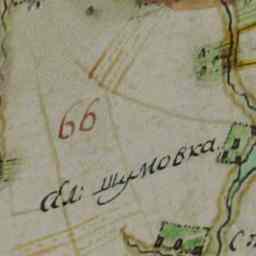 66
сел: шумовка
сп